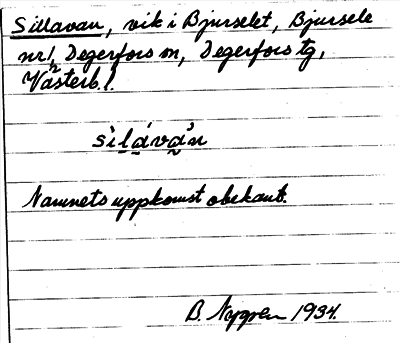 Sillavan, vik i Bjurselet, Bjursele
nr 1, Degerfors sn, Degerfors tg,
Västerb. l.
sìlávàn
Namnets uppkomst obekant.
B. Nygren 1934.